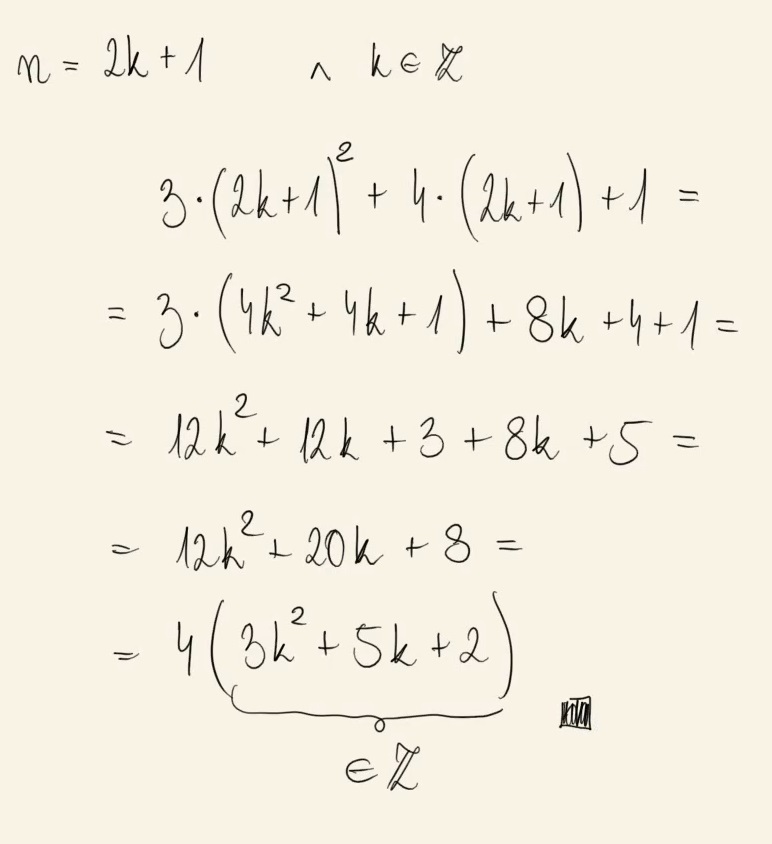 n = 2k + 1 ∧ k ∈ ℤ
3·(2k+1)² + 4·(2k+1) + 1 =
= 3·(4k² + 4k + 1) + 8k + 4 + 1 =
= 12k² + 12k + 3 + 8k + 5 =
= 12k² + 20k + 8 =
= 4(3k² + 5k + 2)
∈ ℤ